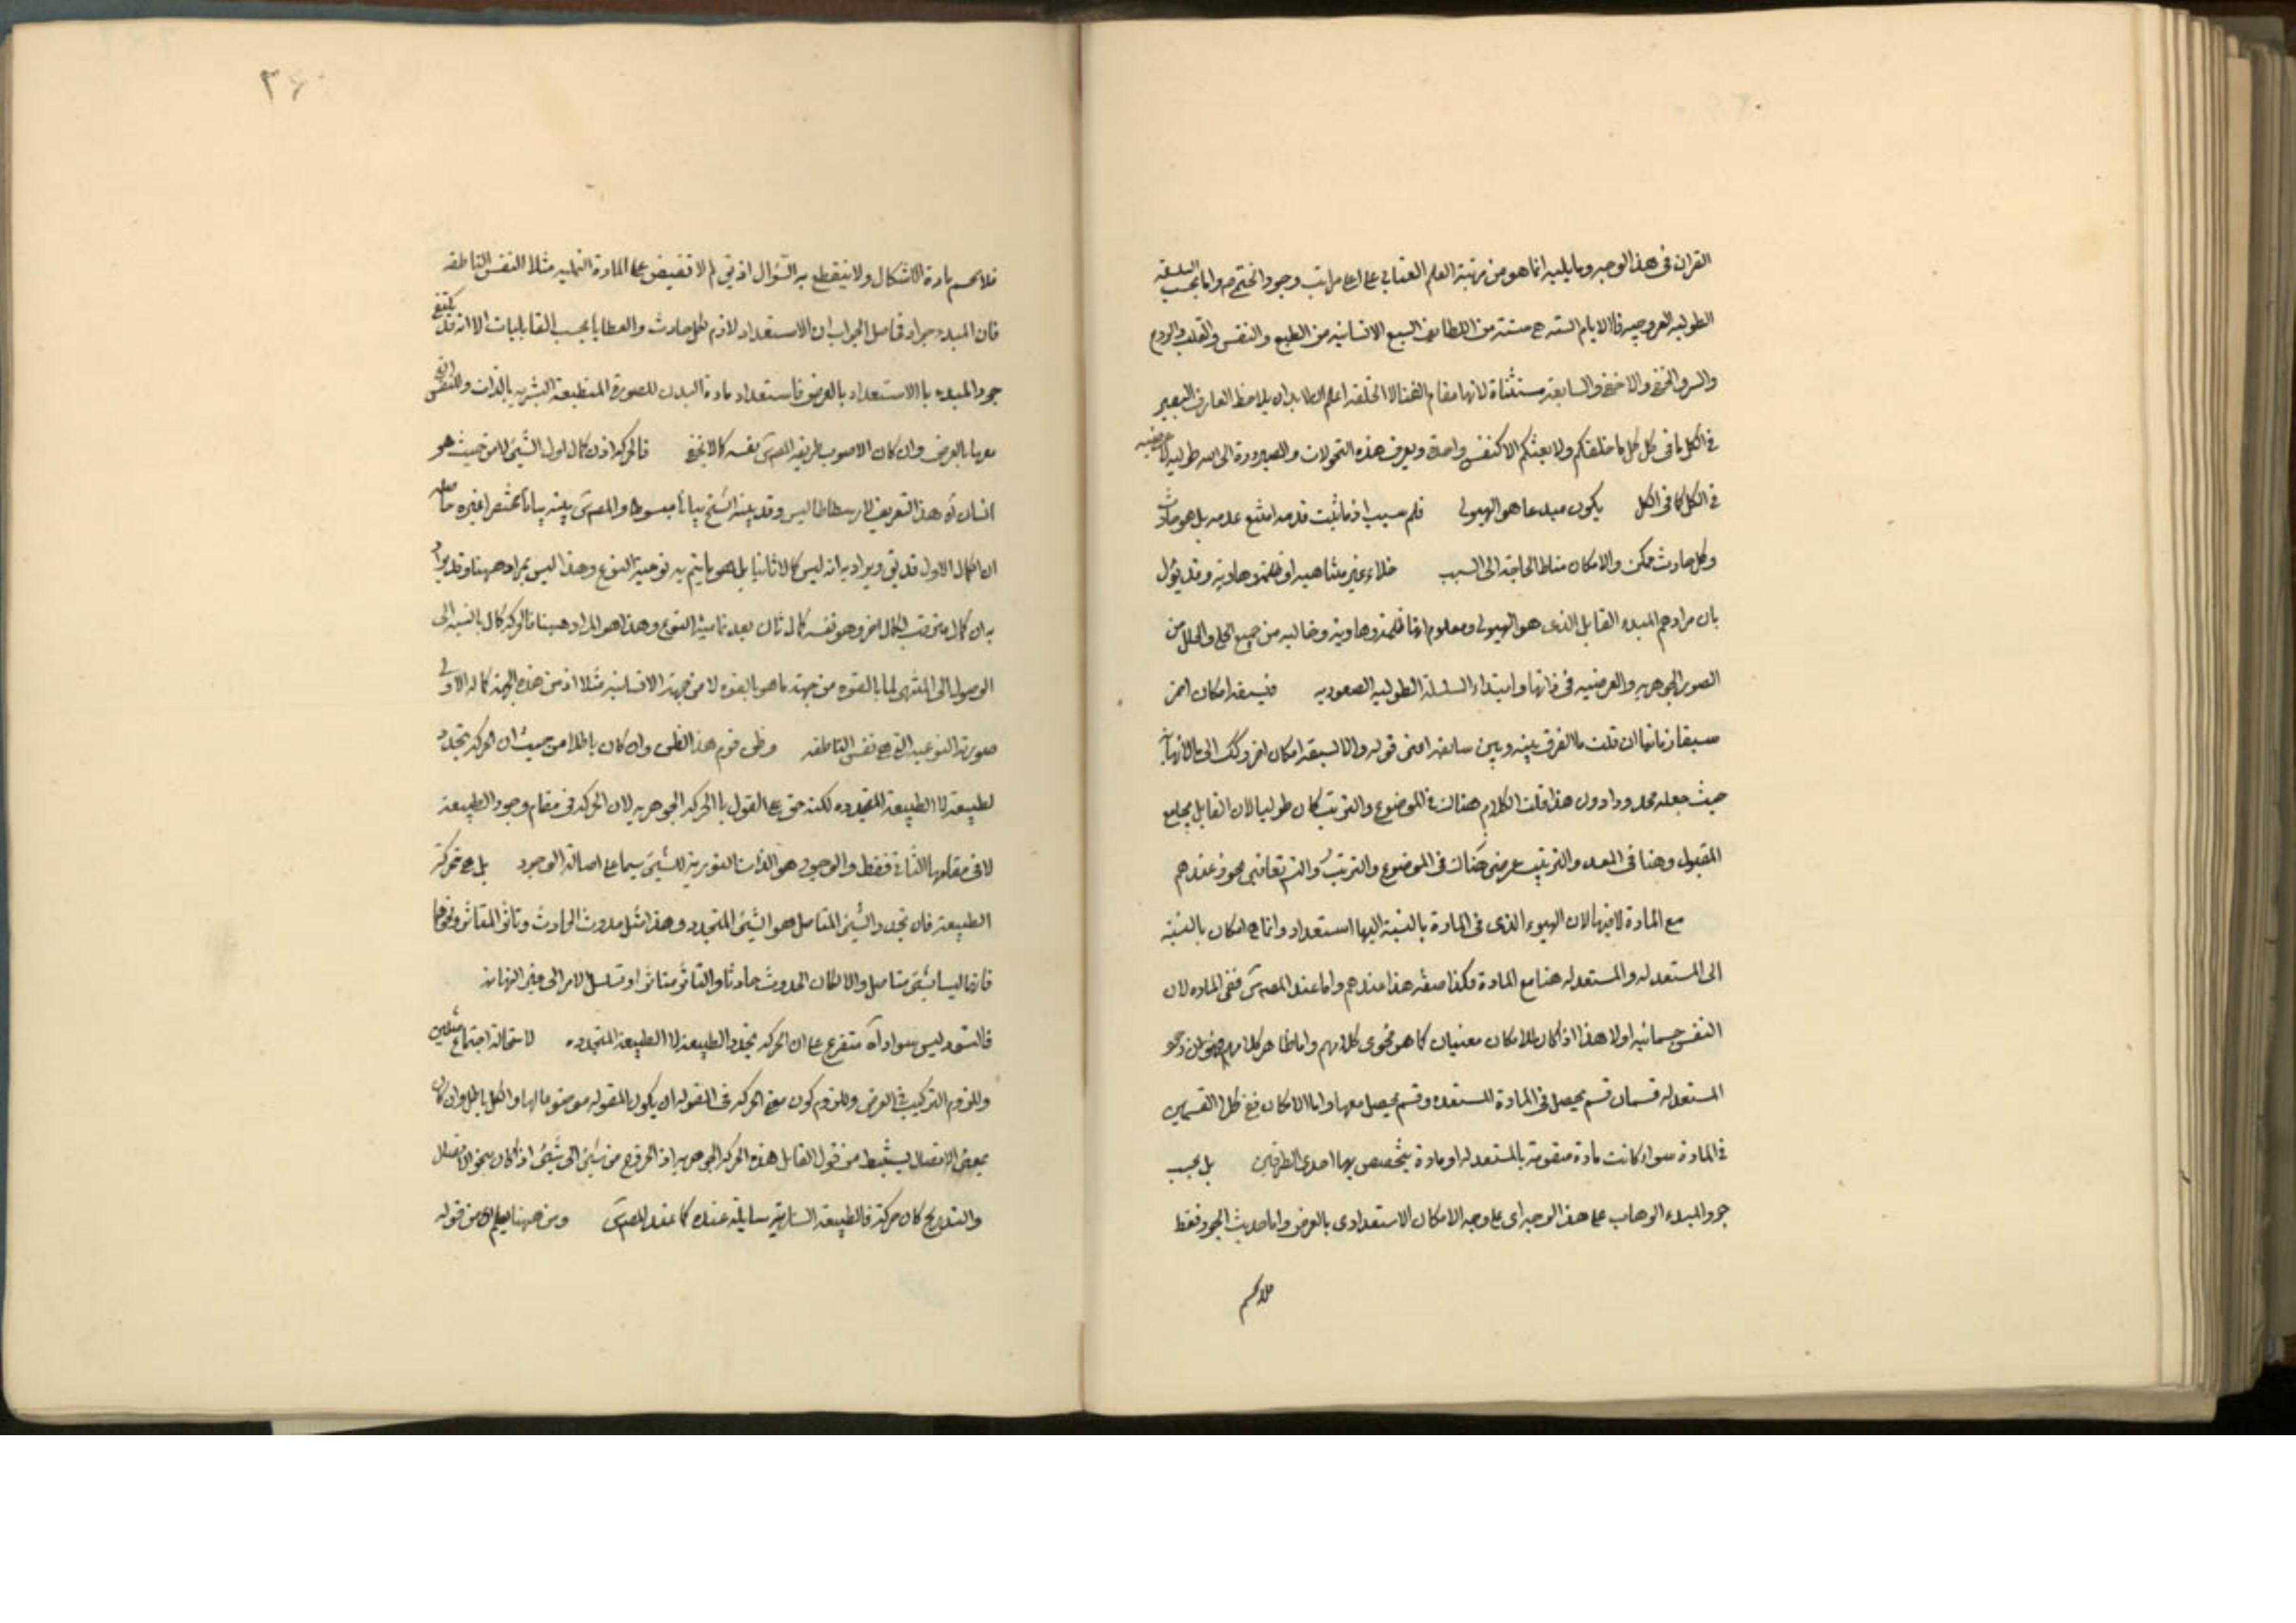 القران فى هذا الوجه وما يليه انما هو من مرتبة العلم العنائى على اعلى مراتب وجود الختم ص واما بحسب السلسلة
الطوليه العروجيه فالايام الستة هى ستة من اللطائف السبع الانسانيه من الطبع والنفس والقلب والروح
والسر والخفى والاخفى والسابعة مستثناة لانها مقام الفناء لا الخلقة اعلم انه لا بد ان يلاحظ العارف البصير
فى الكل ما فى كل كل ما خلقكم ولا بعثكم الا كنفس واحدة ويعرف هذه التحولات والصيرورة الى الله طوليه لا عرضيه
فى الكل كما فى الكل يكون مبدعا هو الهيولى فلم سبب اذ ما ثبت قدمه امتنع عدمه بل هو حادث
وكل حادث ممكن والامكان مناط الحاجة الى السبب خلاء غير متناهيه او ظلمة وهاوية وقد يؤل
بان مرادهم المبدء القابل الذى هو الهيولى ومعلوم انها ظلمة وهاوية وخاليه من جميع الحلى والحلل من
الصور الجوهريه والعرضيه فى ذاتها وابتداء السلسلة الطوليه الصعوديه فيسبقه امكان اخر
سبقا زمانيا ان قلت ما الفرق بينه وبين سابقه اعنى قوله والا لسبقه امكان اخر وكك الى ما لا نهاية
حيث جعله محدورا دون هذا قلت الكلام هناك فى الموضوع والترتيب كان طوليا لان القابل يجامع
المقبول وهنا فى المعد والترتيب عرضى هناك فى الموضوع والترتب والتس تعاقبى مجوز عندهم
مع المادة لا فيها لان الهيوء الذى فى المادة بالنسبة اليها استعداد وانما هى امكان بالنسبة
الى المستعد له والمستعد له هنا مع المادة فكذا صفته هذا عندهم واما عند المصنف س ففى الماده لان
النفس جسمانيه اولا هذا اذا كان للامكان معنيان كما هو فحوى كلامهم واما ظاهر كلامهم فهو ان
المستعد له قسمان قسم يحصل فى المادة المستعده وقسم يحصل معها واما الامكان فهو فى كلا القسمين
فى المادة سواء كانت مادة متقومة بالمستعد له او مادة يتخصص بها احدى الطرفين بل بحسب
جود المبدء الوهاب على هذا الوجه اى على وجه الامكان الاستعدادى بالعرض واما حديث الجود فقط
فلا يحسم
فلا يحسم مادة الاشكال ولا ينقطع به السؤال اذ يق لم لا تفيض على المادة النمليه مثلا النفس الناطقه
فان المبدء جواد فحاصل الجواب ان الاستعداد لازم لكل حادث والعطايا بحسب القابليات الا انه قد يكتفى
جود المبدء بالاستعداد بالعرض فاستعداد مادة البدن للصورة المنطبعة البشريه بالذات وللنفس التى
معها بالعرض وان كان الاصوب طريقه المصنف س نفسه كما لا يخفى فالحركة اذن كمال اول للشىء لا من حيث هو
انسان آه هذا التعريف لارسطاطاليس وقد بينه الشيخ بيانا مبسوطا والمصنف س بينه بيانا مختصرا غيره حاصله
ان الكمال الاول قد يق ويراد به انه ليس كمالا ثانيا بل هو ما يتم به نوعية النوع وهذا ليس بمراد ههنا وقد يراد
به ان كمال مترقب لكمال اخر وهو نفسه كمال ثان بعد تماميت النوع وهذا هو المراد ههنا فالحركة كمال بالنسبة الى
الوصول الى المنتهى لما بالقوه من جهة ما هو بالقوه لا من جهة الانسانيه مثلا اذ من هذه الجهة كماله الاولى
صورته النوعيه التى هى نفس الناطقه وظن قوم هذا الظن وان كان باطلا من حيث ان الحركه تجدد
لطبيعة لا الطبيعة المتجدده لكنه حق على القول بالحركه الجوهريه لان الحركه فى مقام وجود الطبيعة
لا فى مقامها الثانى فقط والوجود هو الذات النوريه للشىء سيما على اصالة الوجود بل هى محركة
الطبيعة فان تجدد الشىء المتاصل هو الشىء المتجدد وهذا مثل حدوث الحادث وتاثر المتاثر ونحوهما
فانها ليسا بشىء متاصل والا لكان الحدوث حادثا والتاثر متاثرا وتسلسل الامر الى غير النهايه
فالتسود ليس سوادا آه متفرع على ان الحركه تجدد الطبيعة لا الطبيعة المتجدده لاستحالة اجتماع مثلين
وللزوم التركيب فى العرض وللزوم كون معنى الحركه فى المقوله ان يكون المقوله موضوعا لها والكل باطل وان كان
بمعنى الاتصال يستنبط من قول القابل هذه الحركه الجوهريه اذ الخروج من شىء الى شىء اذا كان بنحو الاتصال
والتدريج كان حركة فالطبيعة السارية سايلة عنده كما عند المصنف س ومن ههنا يعلم ان من قوله
٣٤٠